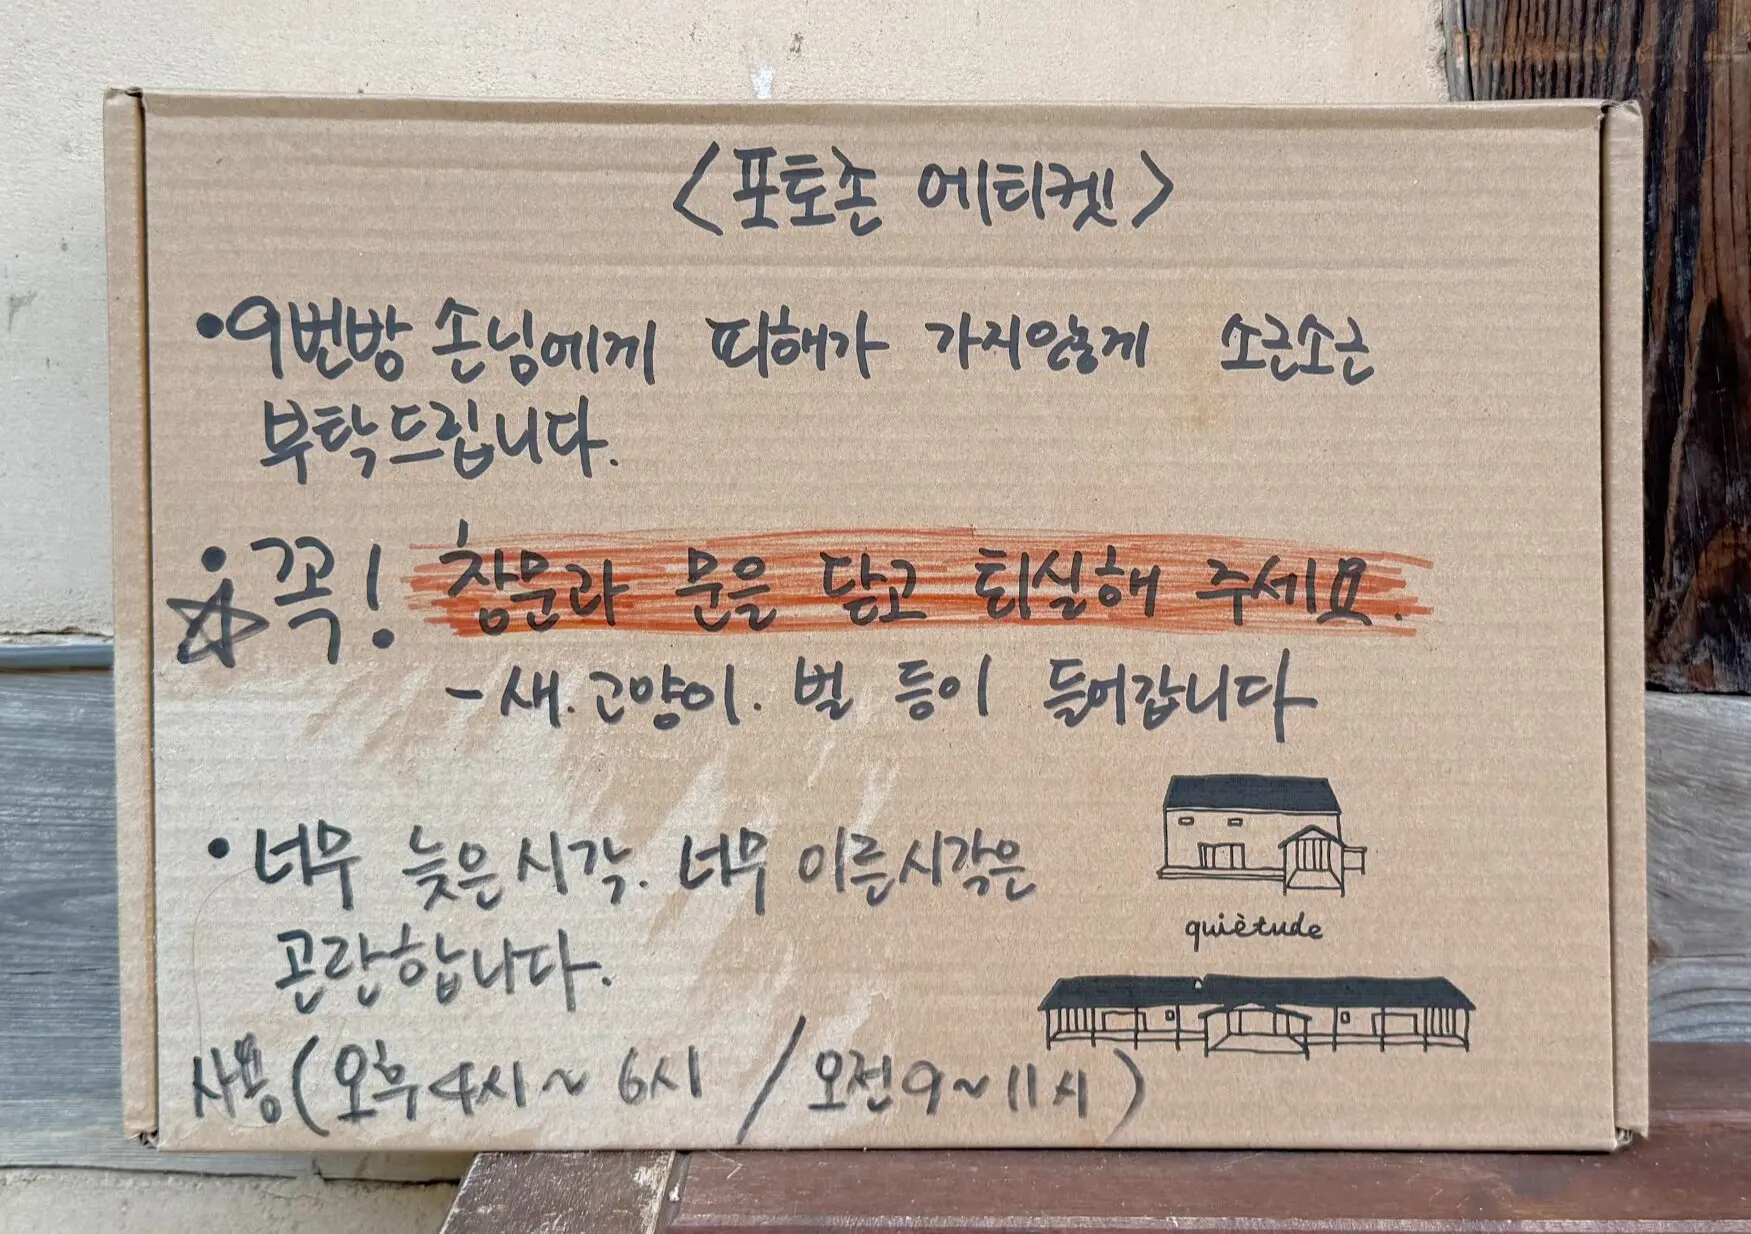 <포토존 에티켓>
•9번방 손님에게 피해가 가지않게 소근소근
부탁드립니다.
•꼭! 창문과 문을 닫고 퇴실해 주세요.
-새.고양이. 벌 등이 들어갑니다
•너무 늦은시각. 너무 이른시각은
곤란합니다.
quiètude
사용(오후4시~6시 / 오전9~11시)